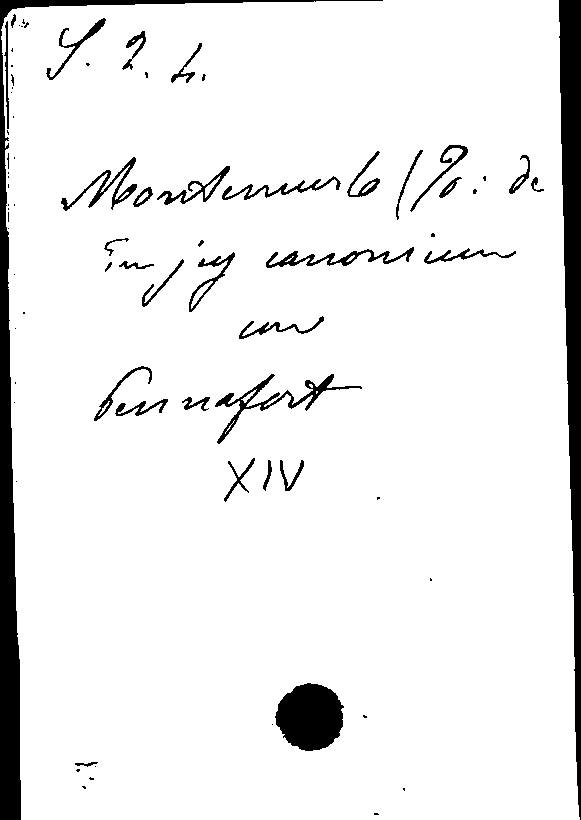 S. 2. 4.
Montemurlo (P: de
In jus canonicum
cum
Pennafort
XIV